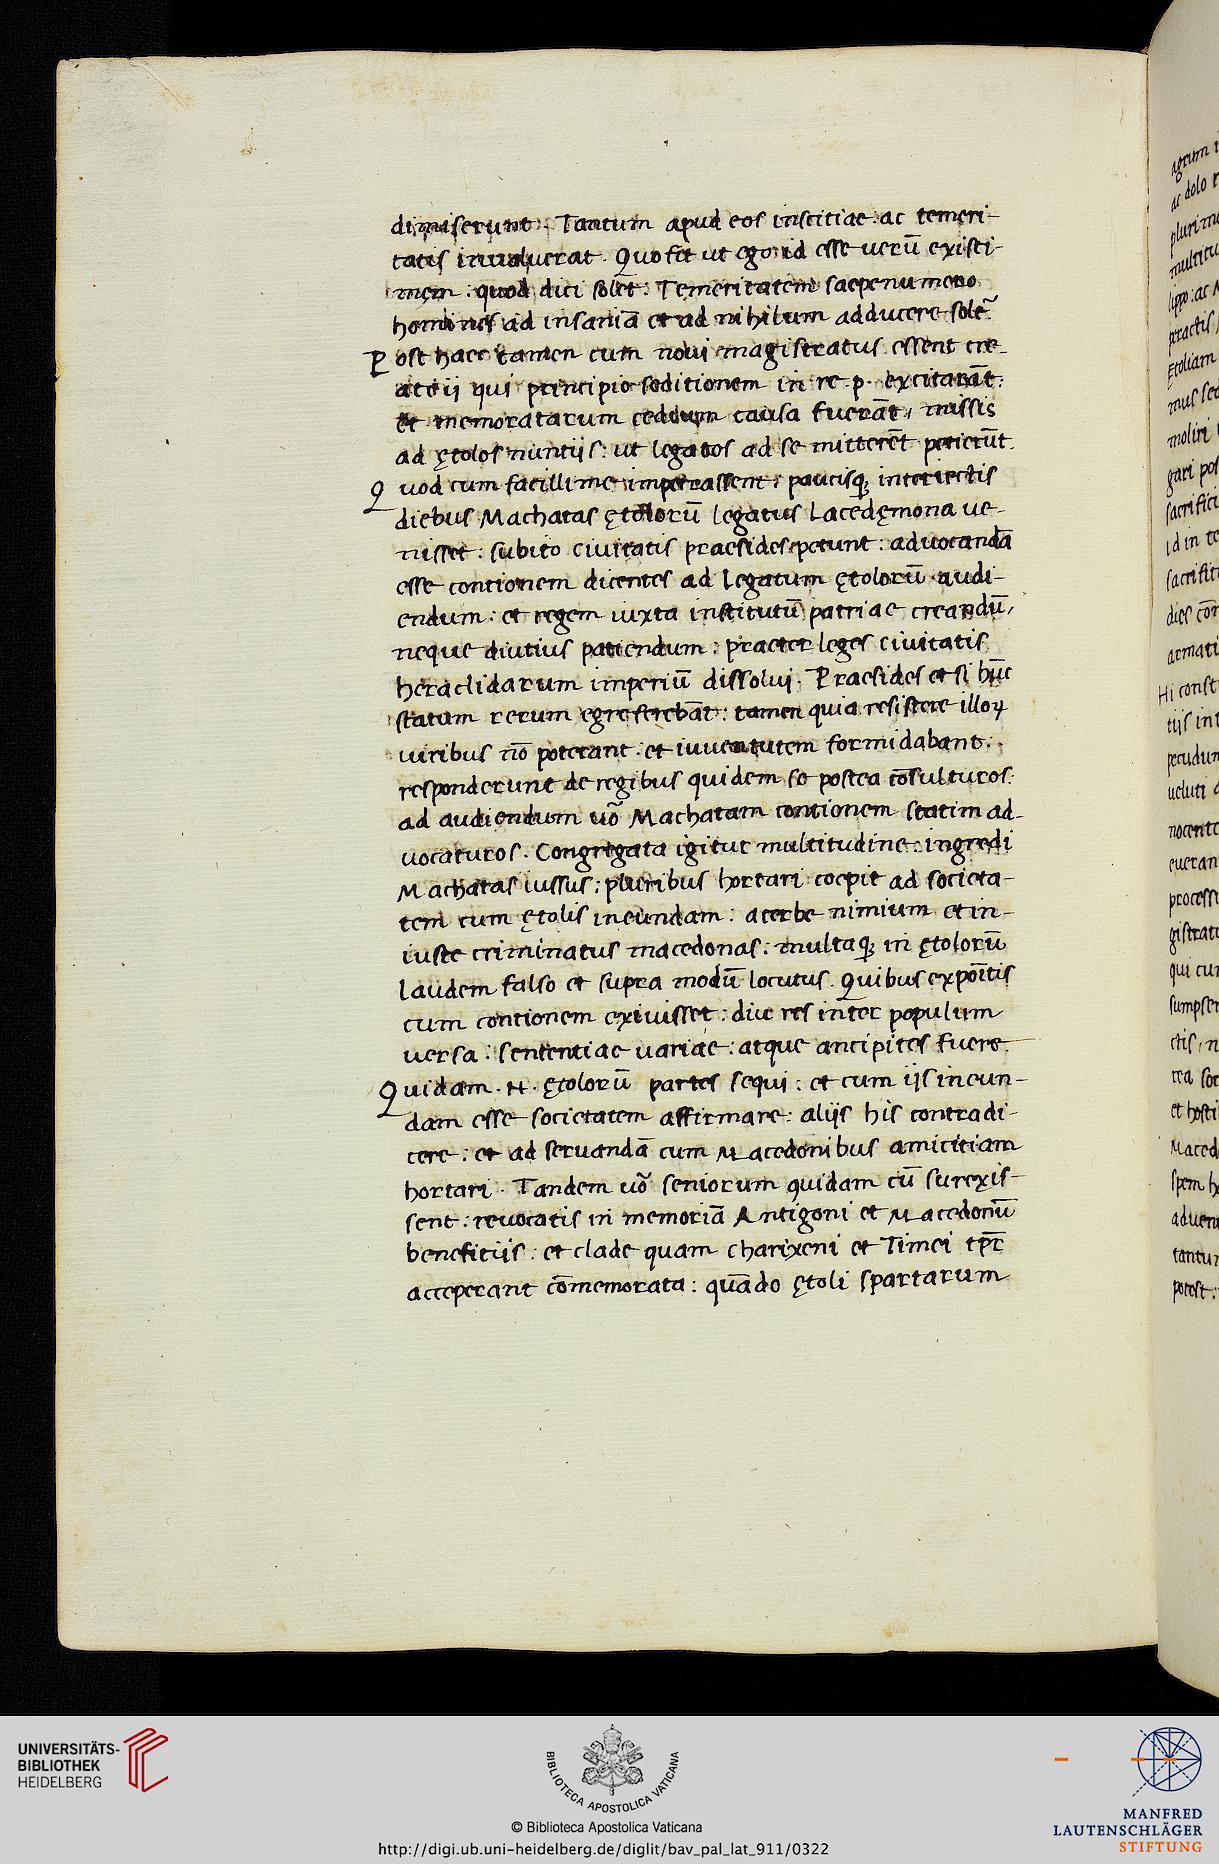 dimiserunt. Tantum apud eos inscitiae. ac temeri-
tatis inualuerat. Quo fit ut ego id esse uerū existi-
mem: quod dici solet: Temeritatem saepenumero
homines ad insaniā et ad nihilum adducere solē̃.
Post haec tamen cum noui magistratus essent cre-
ati ii qui principio seditionem in re. p. excitarāt:
et memoratarum cedium causa fuerāt, missis
ad ętolos nuntijs: ut legatos ad se mitterēt petierūt.
Quod cum facillime impetrassent: paucisq; interiectis
diebus Machatas ętolorū legatus Lacedęmona ue-
nisset: subito ciuitatis praesides petunt: aduocandā
esse contionem dicentes ad Legatum ętolorū audi-
endum: et regem iuxta institutū patriae creandū,
neque diutius patiendum: praeter leges ciuitatis
heraclidarum imperiū dissolui. Praesides et si hūc
statum rerum egre ferebāt: tamen quia resistere illoꝝ
uiribus nō poterant. et iuuentutem formidabant:
responderunt de regibus quidem se postea cōsulturos:
ad audiendum uõ Machatam contionem statim ad-
uocaturos. Congregata igitur multitudine: ingredi
Machatas iussus: pluribus hortari coepit ad societa-
tem cum ętolis ineundam: acerbe nimium et in-
iuste criminatus macedonas: multaq; in ętolorū
Laudem falso et supra modū locutus. Quibus expoītis
cum contionem exiuisset: diu res inter populum
uersa: sententiae uariae: atque ancipites fuere.
Quidam. N. ętolorū partes sequi: et cum ijs ineun-
dam esse societatem affirmare: alijs his contradi-
cere: et ad seruandā cum Macedonibus amicitiam
hortari. Tandem uõ seniorum quidam cū surexis-
sent: reuocatis in memoriā Antigoni et Macedonū
benefitijs: et clade quam charixeni et Timei tp̄r
acceperant cōmemorata: quādo ętoli spartarum
UNIVERSITÄTS-
BIBLIOTHEK
HEIDELBERG
BIBLIOTECA APOSTOLICA VATICANA
© Biblioteca Apostolica Vaticana
http://digi.ub.uni-heidelberg.de/diglit/bav_pal_lat_911/0322
MANFRED
LAUTENSCHLÄGER
STIFTUNG